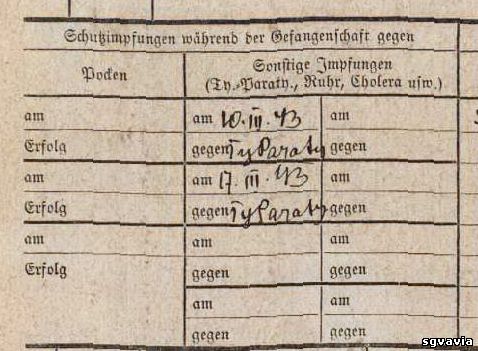 Schutzimpfungen während der Gefangenschaft gegen
Pocken
Sonstige Impfungen
(Ty.-Paraty., Ruhr, Cholera usw.)
am am 10. III. 43 am
Erfolg gegen TyParaty gegen
am am 17. III. 43 am
Erfolg gegen TyParaty gegen
am am am
Erfolg gegen gegen
am am
gegen gegen
sgvavia